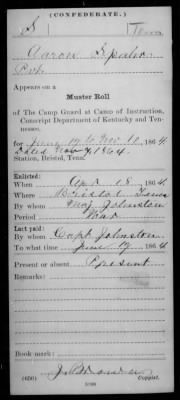 (CONFEDERATE.)
S Tenn
Aaron
Pvt.
Appears on a
Muster Roll
of The Camp Guard at Camp of Instruction,
Conscript Department of Kentucky and Tennessee,
for June 17 to Nov 11, 1864.
Dated Nov 1864
Station, Bristol, Tenn.
Enlisted:
When Apr 18, 1864.
Where Bristol Tenn
By whom Maj Johnston
Period War
Last paid:
By whom Capt Johnston
To what time June 17, 1864
Present or absent, Present
Remarks:
Book mark:
(650) Copyist.